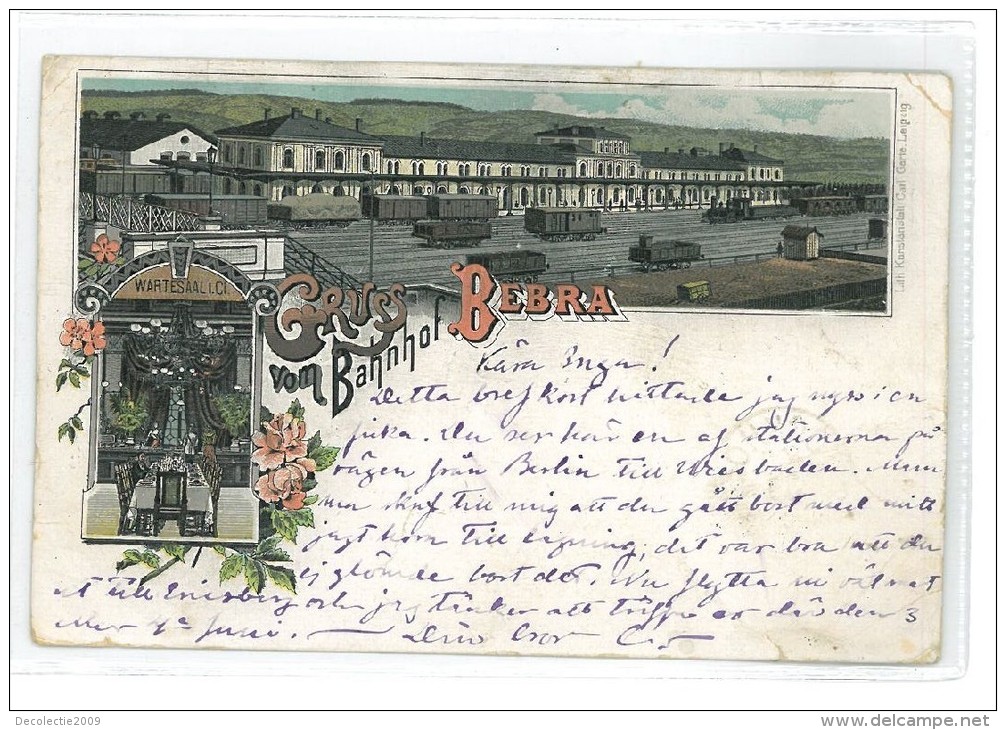 WARTESAAL I. Cl.
Gruss
vom Bahnhof Bebra
Lith. Kunstanstalt Carl Garte, Leipzig
Kära Inga!
Detta brefkort hittade jag nyss i en
ficka. Du ser här en af stationerna på
vägen från Berlin till Wiesbaden. Mam
skref till mig att du gått bort med mitt
jagthorn till det var bra att du
ej glömde bort det. Nu flytta ni väl
ut till och jag tänker att träffa er där den 3
eller 4de Juni. — Din
Decolectie2009
www.delcampe.net